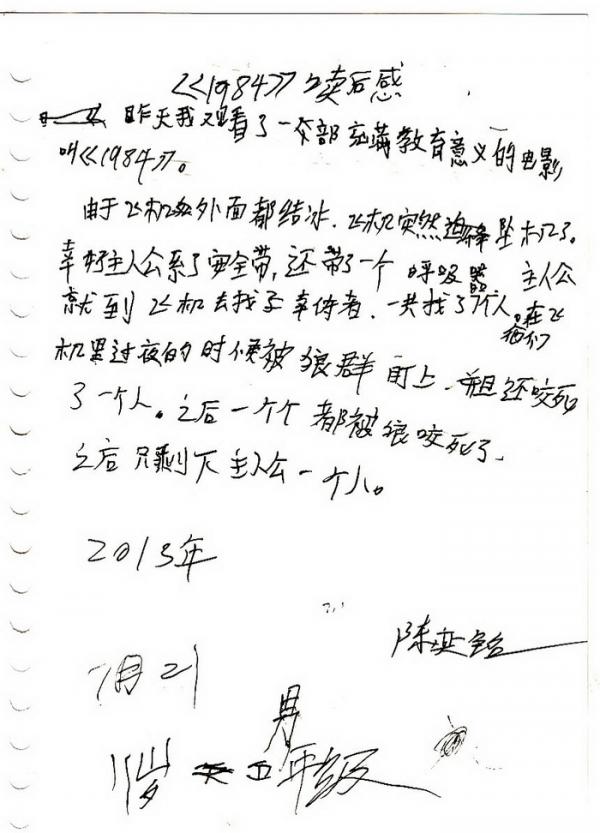 《1984》读后感
昨天我又看了一个部充满教育意义的电影
叫《1984》。
由于飞机外面都结冰,飞机突然迫降坠机了。
幸好主人公系了安全带,还带了一个呼吸器 主人公
就到飞机去找了幸侍者,一共找了7个人。在飞
他们
机里过夜的时候被狼群盯上,并且还咬死
了一个人。之后一个个都被狼咬死了
之后只剩下主人公一个人。
2013年
陈
7月21
男
11岁 五年级